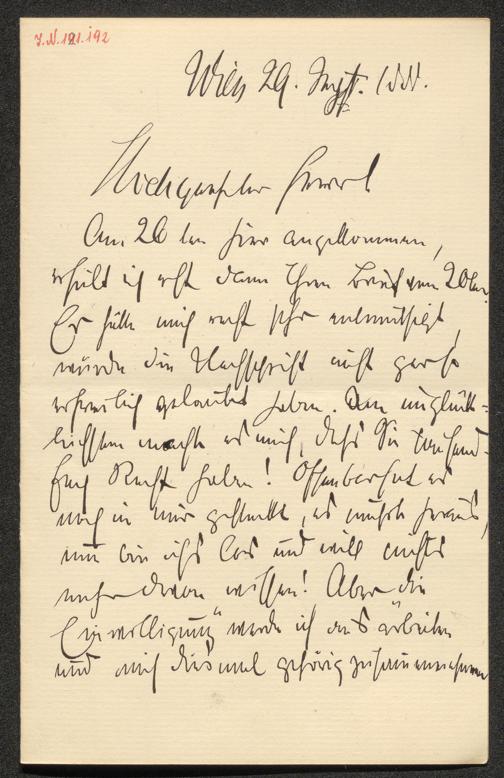 J.N. 121.192
Wien 29. Sept. 188.
Hochgeehrter Herr!
Am 26ten hier angekommen,
erhielt ich erst dann Ihren Brief vom 20ten.
Er hätte mich recht sehr entmuthigt,
würde die Nachschrift nicht gar so
erfreulich gelautet haben. Am unglück-
lichsten machte es mich, dass Sie
Recht haben! Offenbar hat es
noch in mir gesteckt, es musste heraus,
nun bin ichs los und will nichts
mehr davon wissen! Aber die
"Einwilligung" werde ich ausarbeiten
und mich diesmal gehörig zusammennehmen